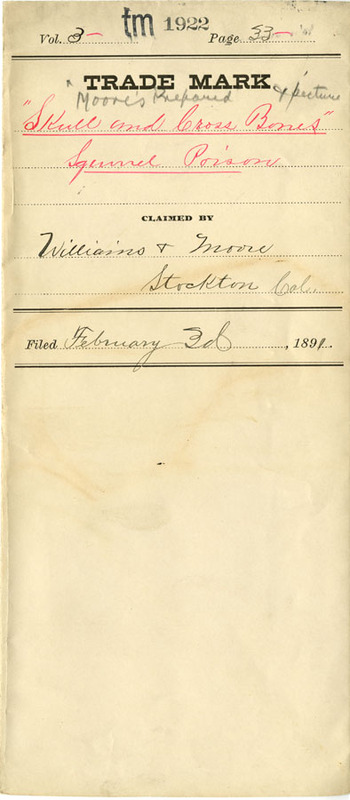 tm 1922
Vol. 3 Page 53
TRADE MARK
"Moore's Prepared & picture
"Skull and Cross Bones"
Squirrel Poison
CLAIMED BY
Williams & Moore
Stockton Cal.
Filed February 3d, 1891.